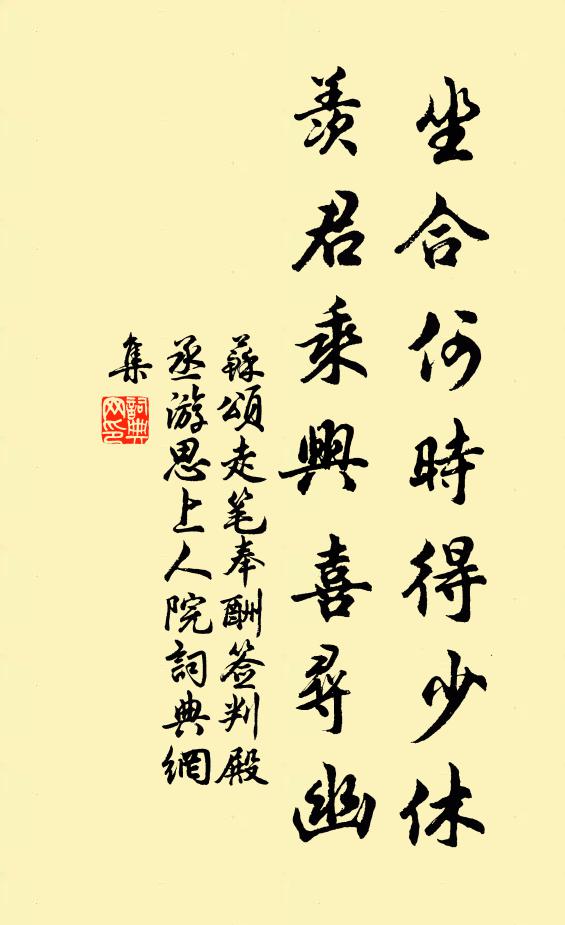 坐合何時得少休
羨君乘興喜尋幽
蘇頌走笔奉酬签判殿
丞游思上人院詞典網
集
詞典
网印